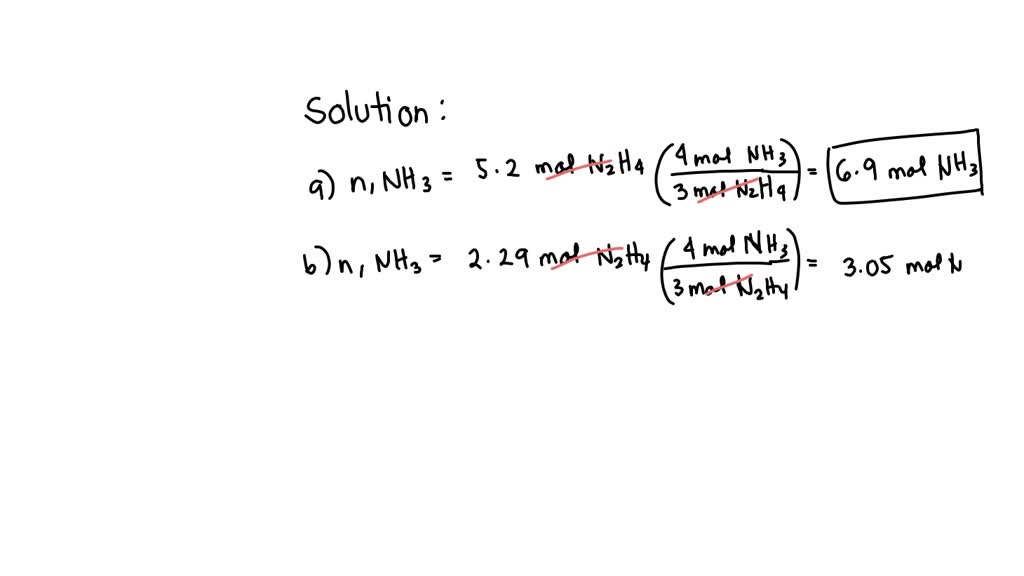 Solution:
a) n, NH3 = 5.2 mol N2H4 (4 mol NH3 / 3 mol N2H4) = 6.9 mol NH3
b) n, NH3 = 2.29 mol N2H4 (4 mol NH3 / 3 mol N2H4) = 3.05 mol